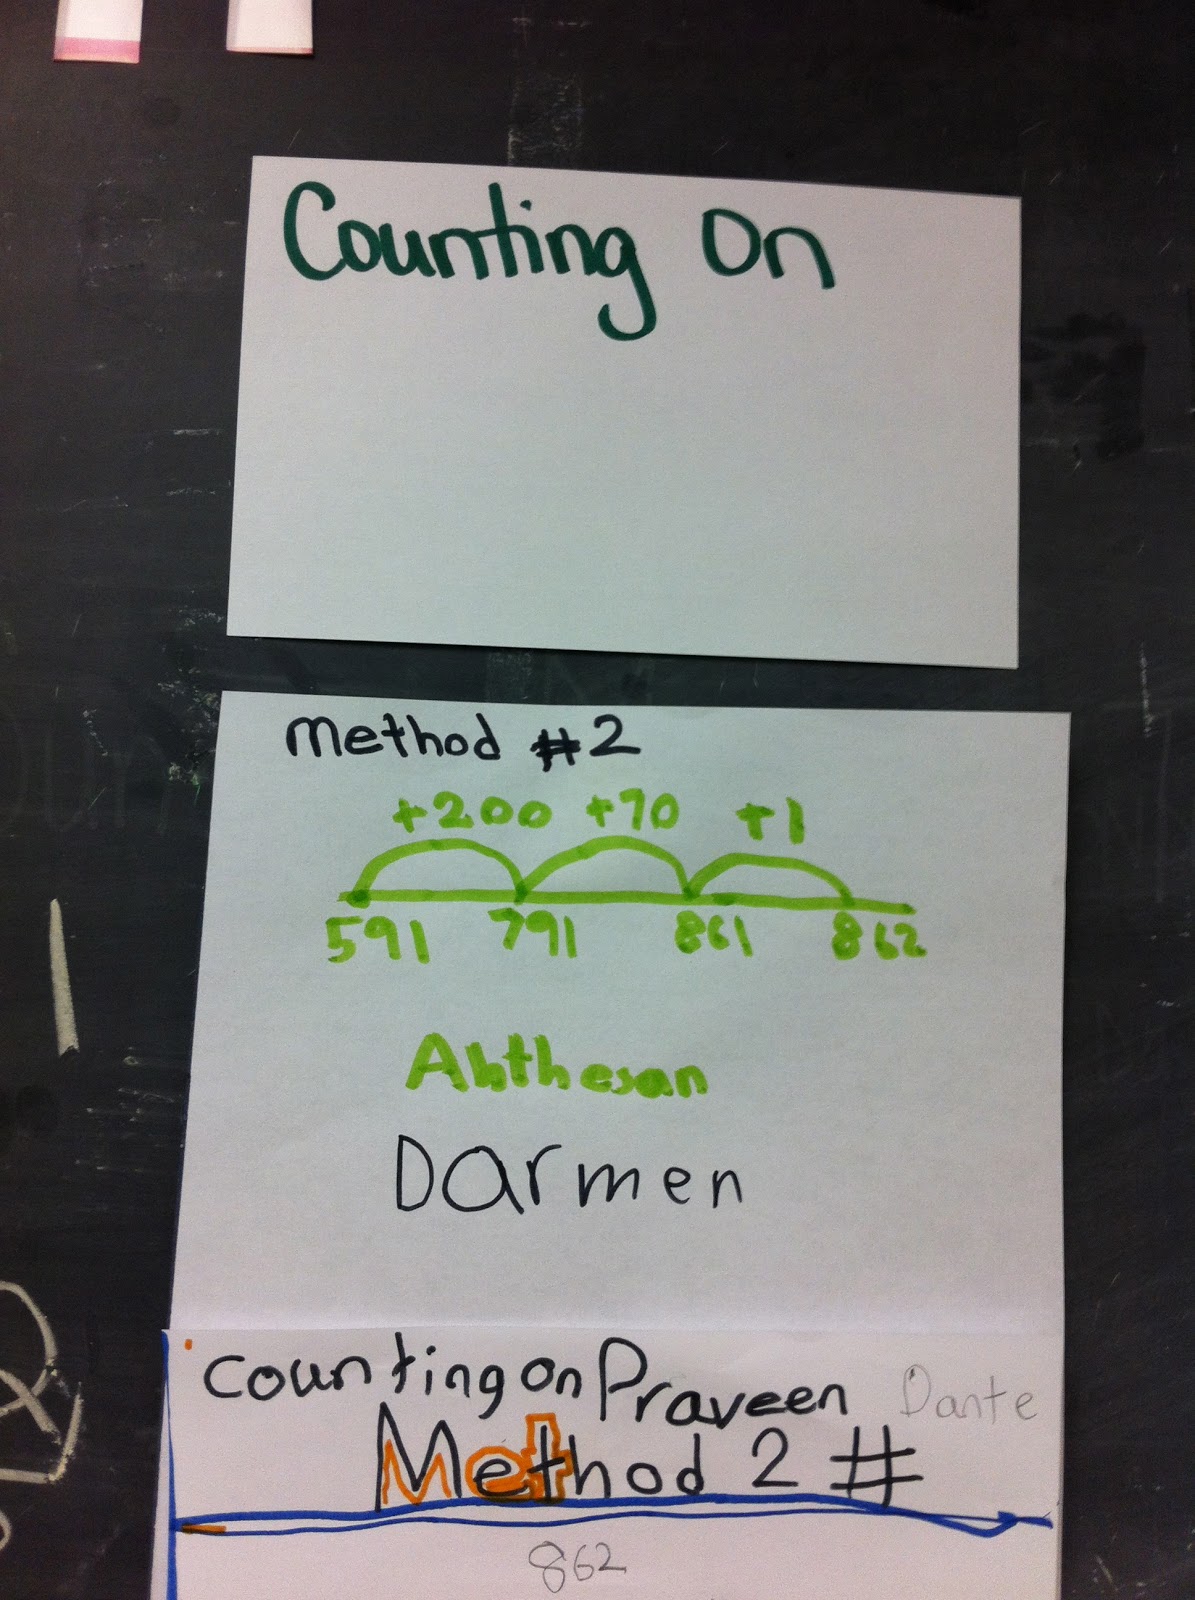 Counting On
Method #2
+200 +70 +1
591 791 861 862
Abthesan
Darmen
counting on Praveen Dante
Method 2 #
862